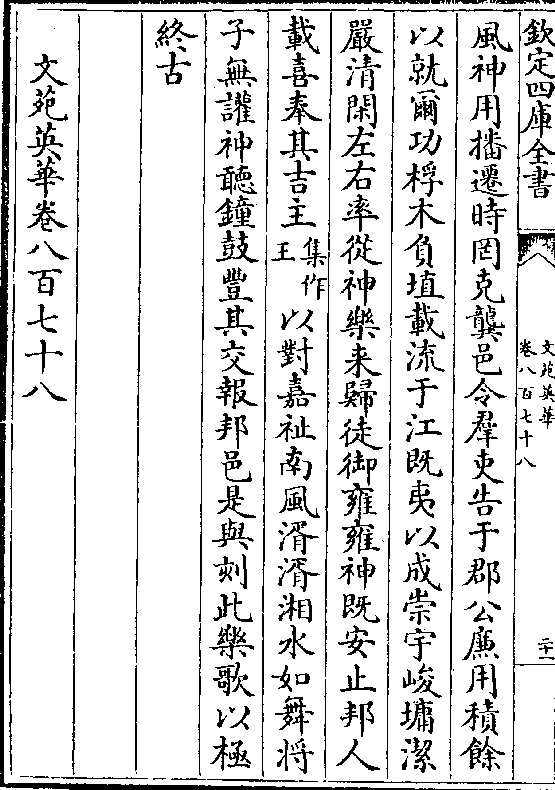 欽定四庫全書
文苑英華
卷八百七十八
二十一
風神用播遷時罔克龔邑令羣吏告于郡公廉用積餘
以就爾功桴木負埴載流于江既夷以成崇宇峻墉潔
嚴清閑左右率從神樂来歸徒御雍雍神既安止邦人
載喜奉其吉主集作王以對嘉祉南風湑湑湘水如舞將
子無讙神聽鐘鼓豐其交報邦邑是與刻此樂歌以極
終古
文苑英華卷八百七十八